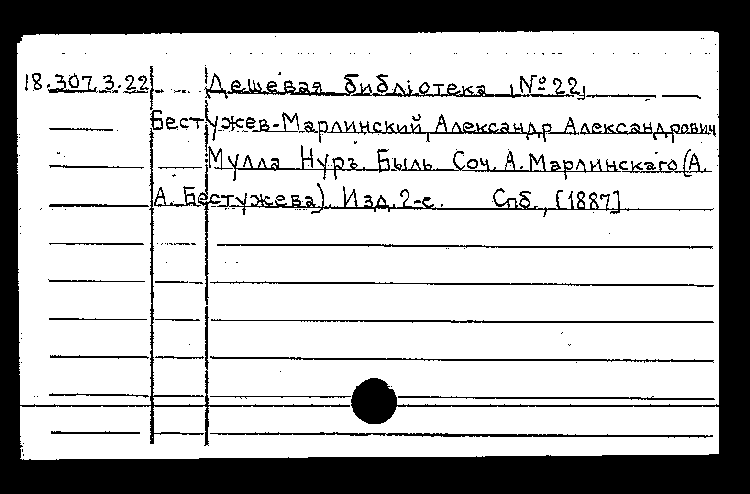 18.307.3.22 Дешевая библіотека, №22,
Бестужев-Марлинский, Александр Александрович
Мулла Нуръ. Быль Соч. А. Марлинскаго (А.
А. Бестужева). Изд. 2-е. Спб., [1887]